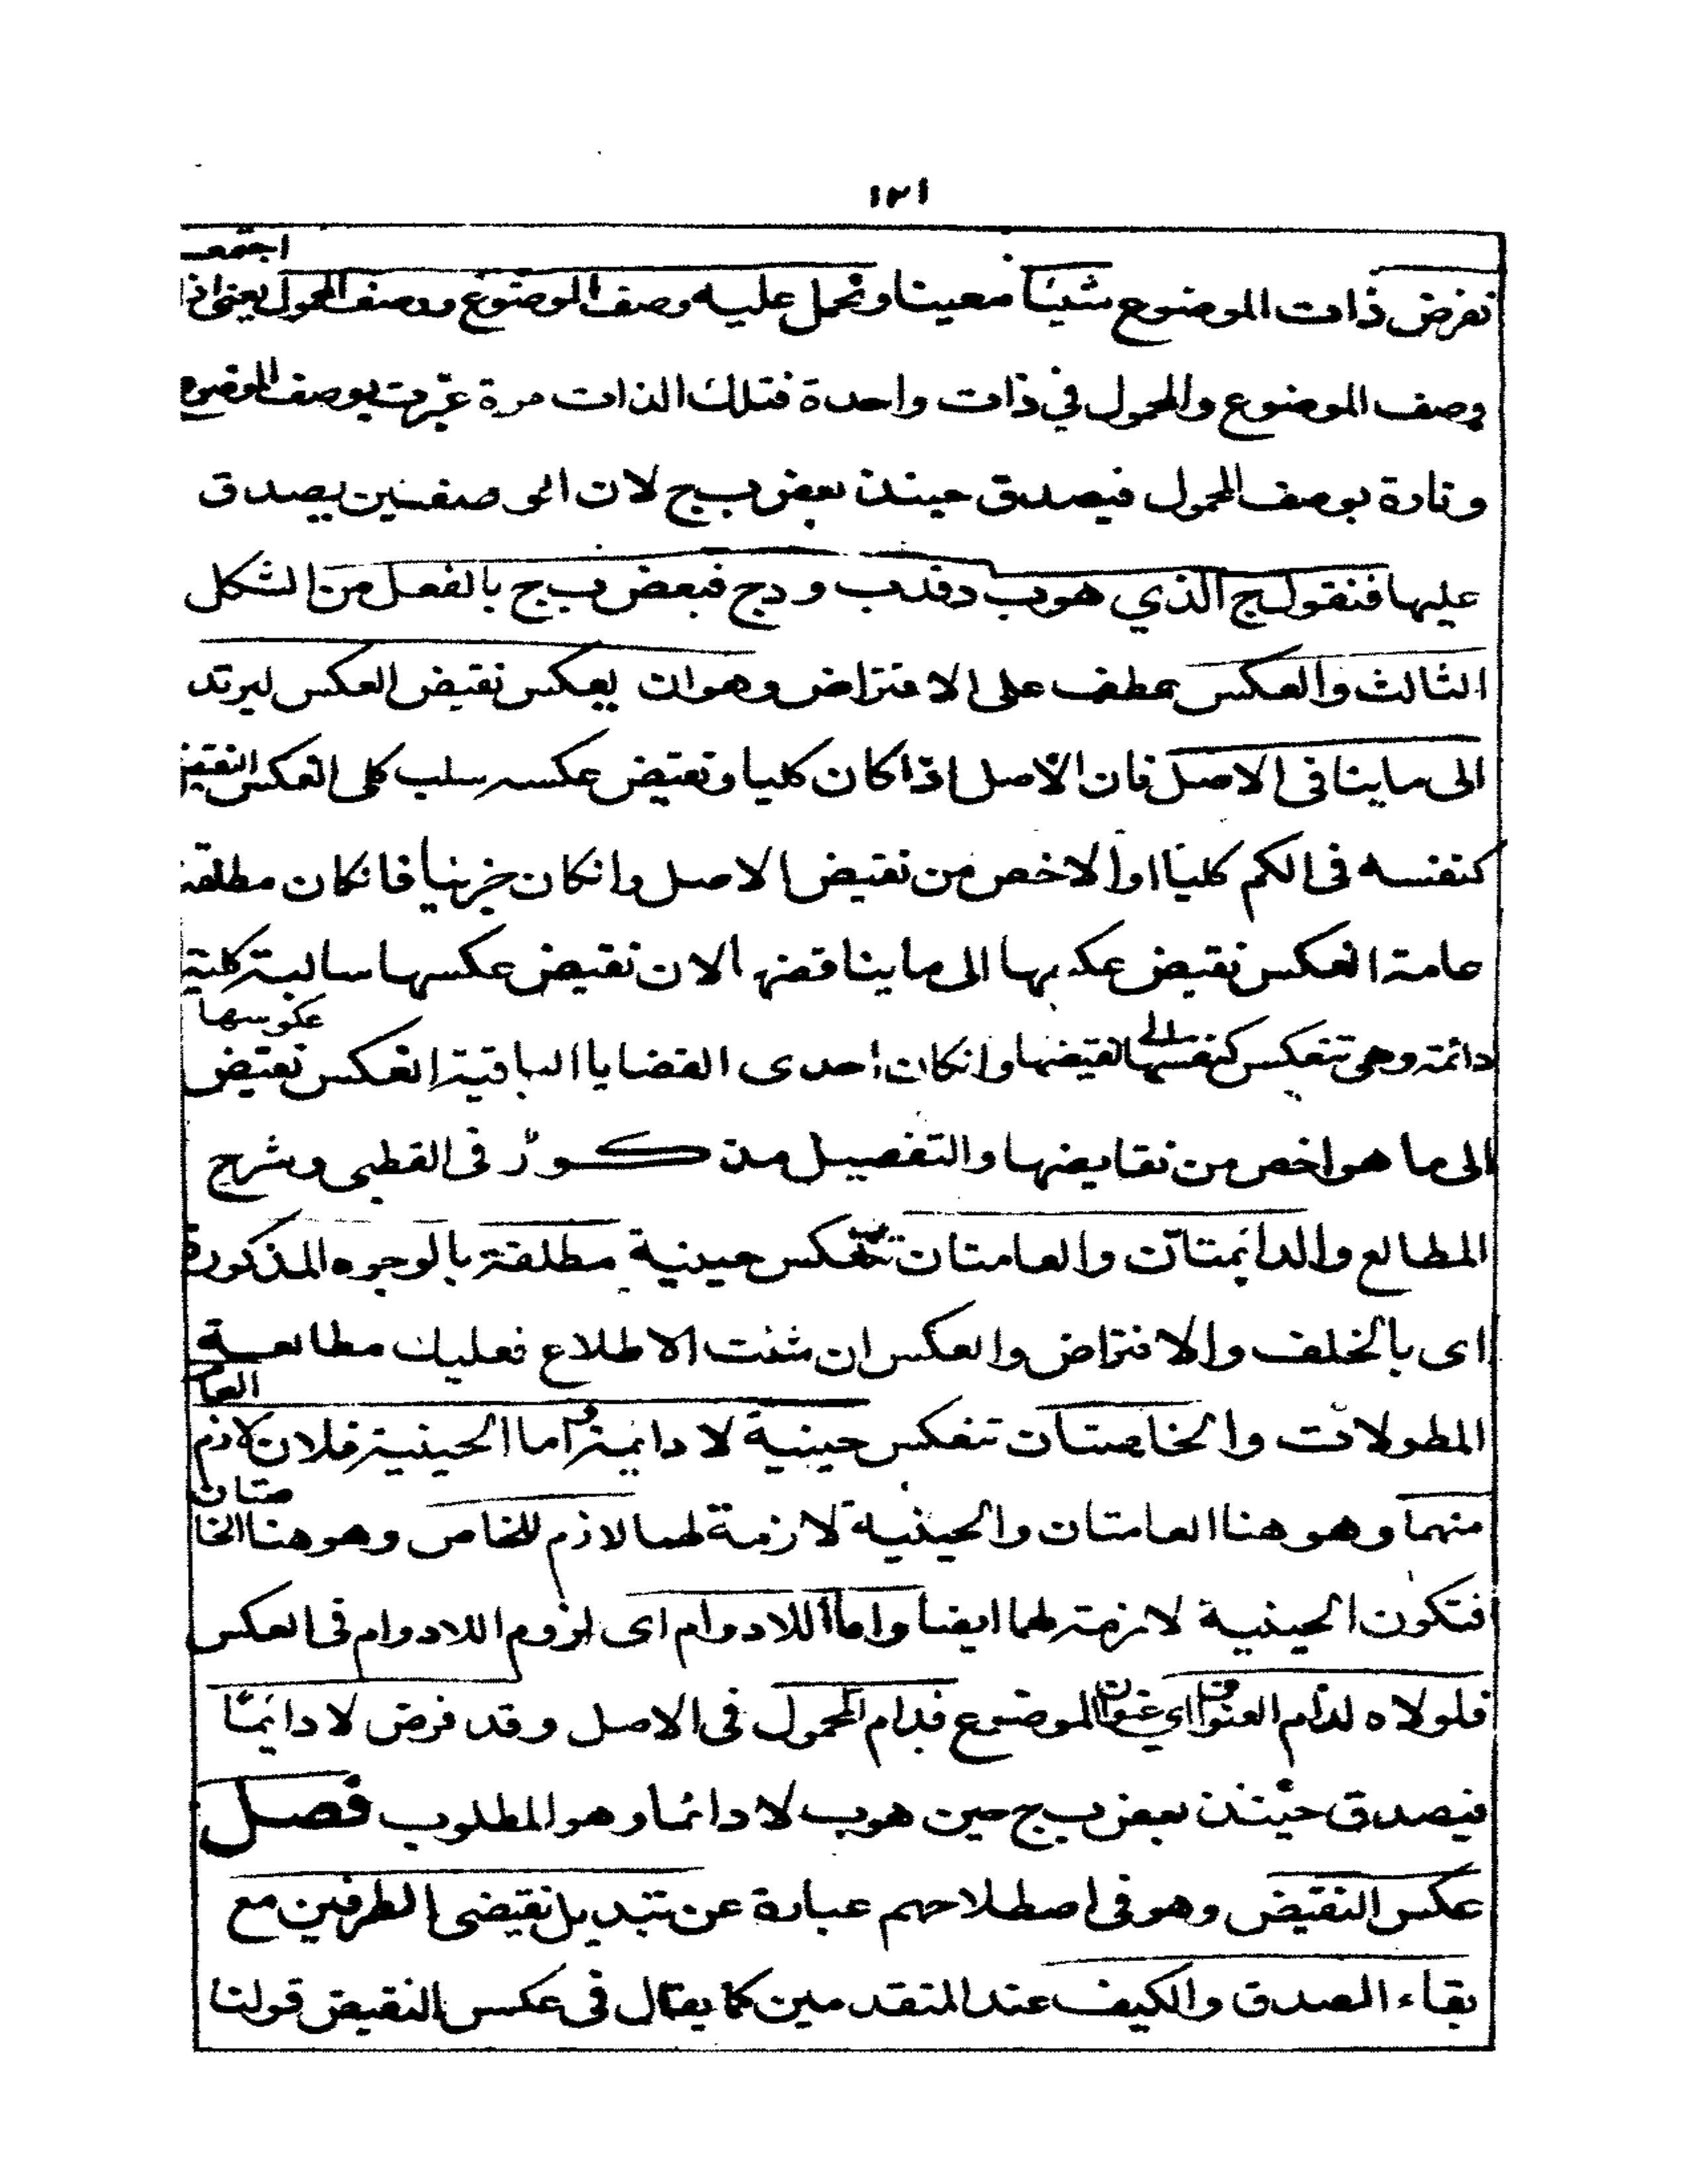 ١٢١
نفرض ذات الموضوع شيئا معينا ونحمل عليه وصف الموضوع ووصف المحمول يعنى اذا اجتمع
وصف الموضوع والمحمول في ذات واحدة فتلك الذات مرة عبرت بوصف الموضوع
وتارة بوصف المحمول فيصدق حينئذ بعض ب ج لان الوصفين يصدق
عليها فنقول ج الذي هو ب د فد ب و د ج فبعض ب ج بالفعل من الشكل
الثالث والعكس عطف على الافتراض وهو ان يعكس نقيض العكس ليرتد
الى ما ينافى الاصل فان الاصل اذا كان كليا ونقيض عكسه سلب كلى انعكس النقيض
كنفسه فى الكم كليا او الاخص من نقيض الاصل وانكان جزئيا فانكان مطلقة
عامة انعكس نقيض عكسها الى ما يناقضها لان نقيض عكسها سالبة كلية
دائمة وهى تنعكس كنفسها الى نقيضها وانكان احدى القضايا الباقية انعكس نقيض عكوسها
الى ما هو اخص من نقايضها والتفصيل مذكور فى القطبى وشرح
المطالع والدائمتان والعامتان تنعكس حينية مطلقة بالوجوه المذكورة
اى بالخلف والافتراض والعكس ان شئت الاطلاع فعليك مطالعة
المطولات والخاصتان تنعكس حينية لا دائمة اما الحينية فلان لازم العام
منهما وهو هنا العامتان والحينية لازمة لهما لازم للخاص وهو هنا الخاصتان
فتكون الحينية لازمة لهما ايضا واما اللادوام اى لزوم اللادوام فى العكس
فلولاه لدام العنوان اي عنوان الموضوع فدام المحمول فى الاصل وقد فرض لا دائما
فيصدق حينئذ بعض ب ج حين هو ب لا دائما وهو المطلوب فصل
عكس النقيض وهو فى اصطلاحهم عبارة عن تبديل نقيضى الطرفين مع
بقاء الصدق والكيف عند المتقدمين كما يقال فى عكس النقيض قولنا